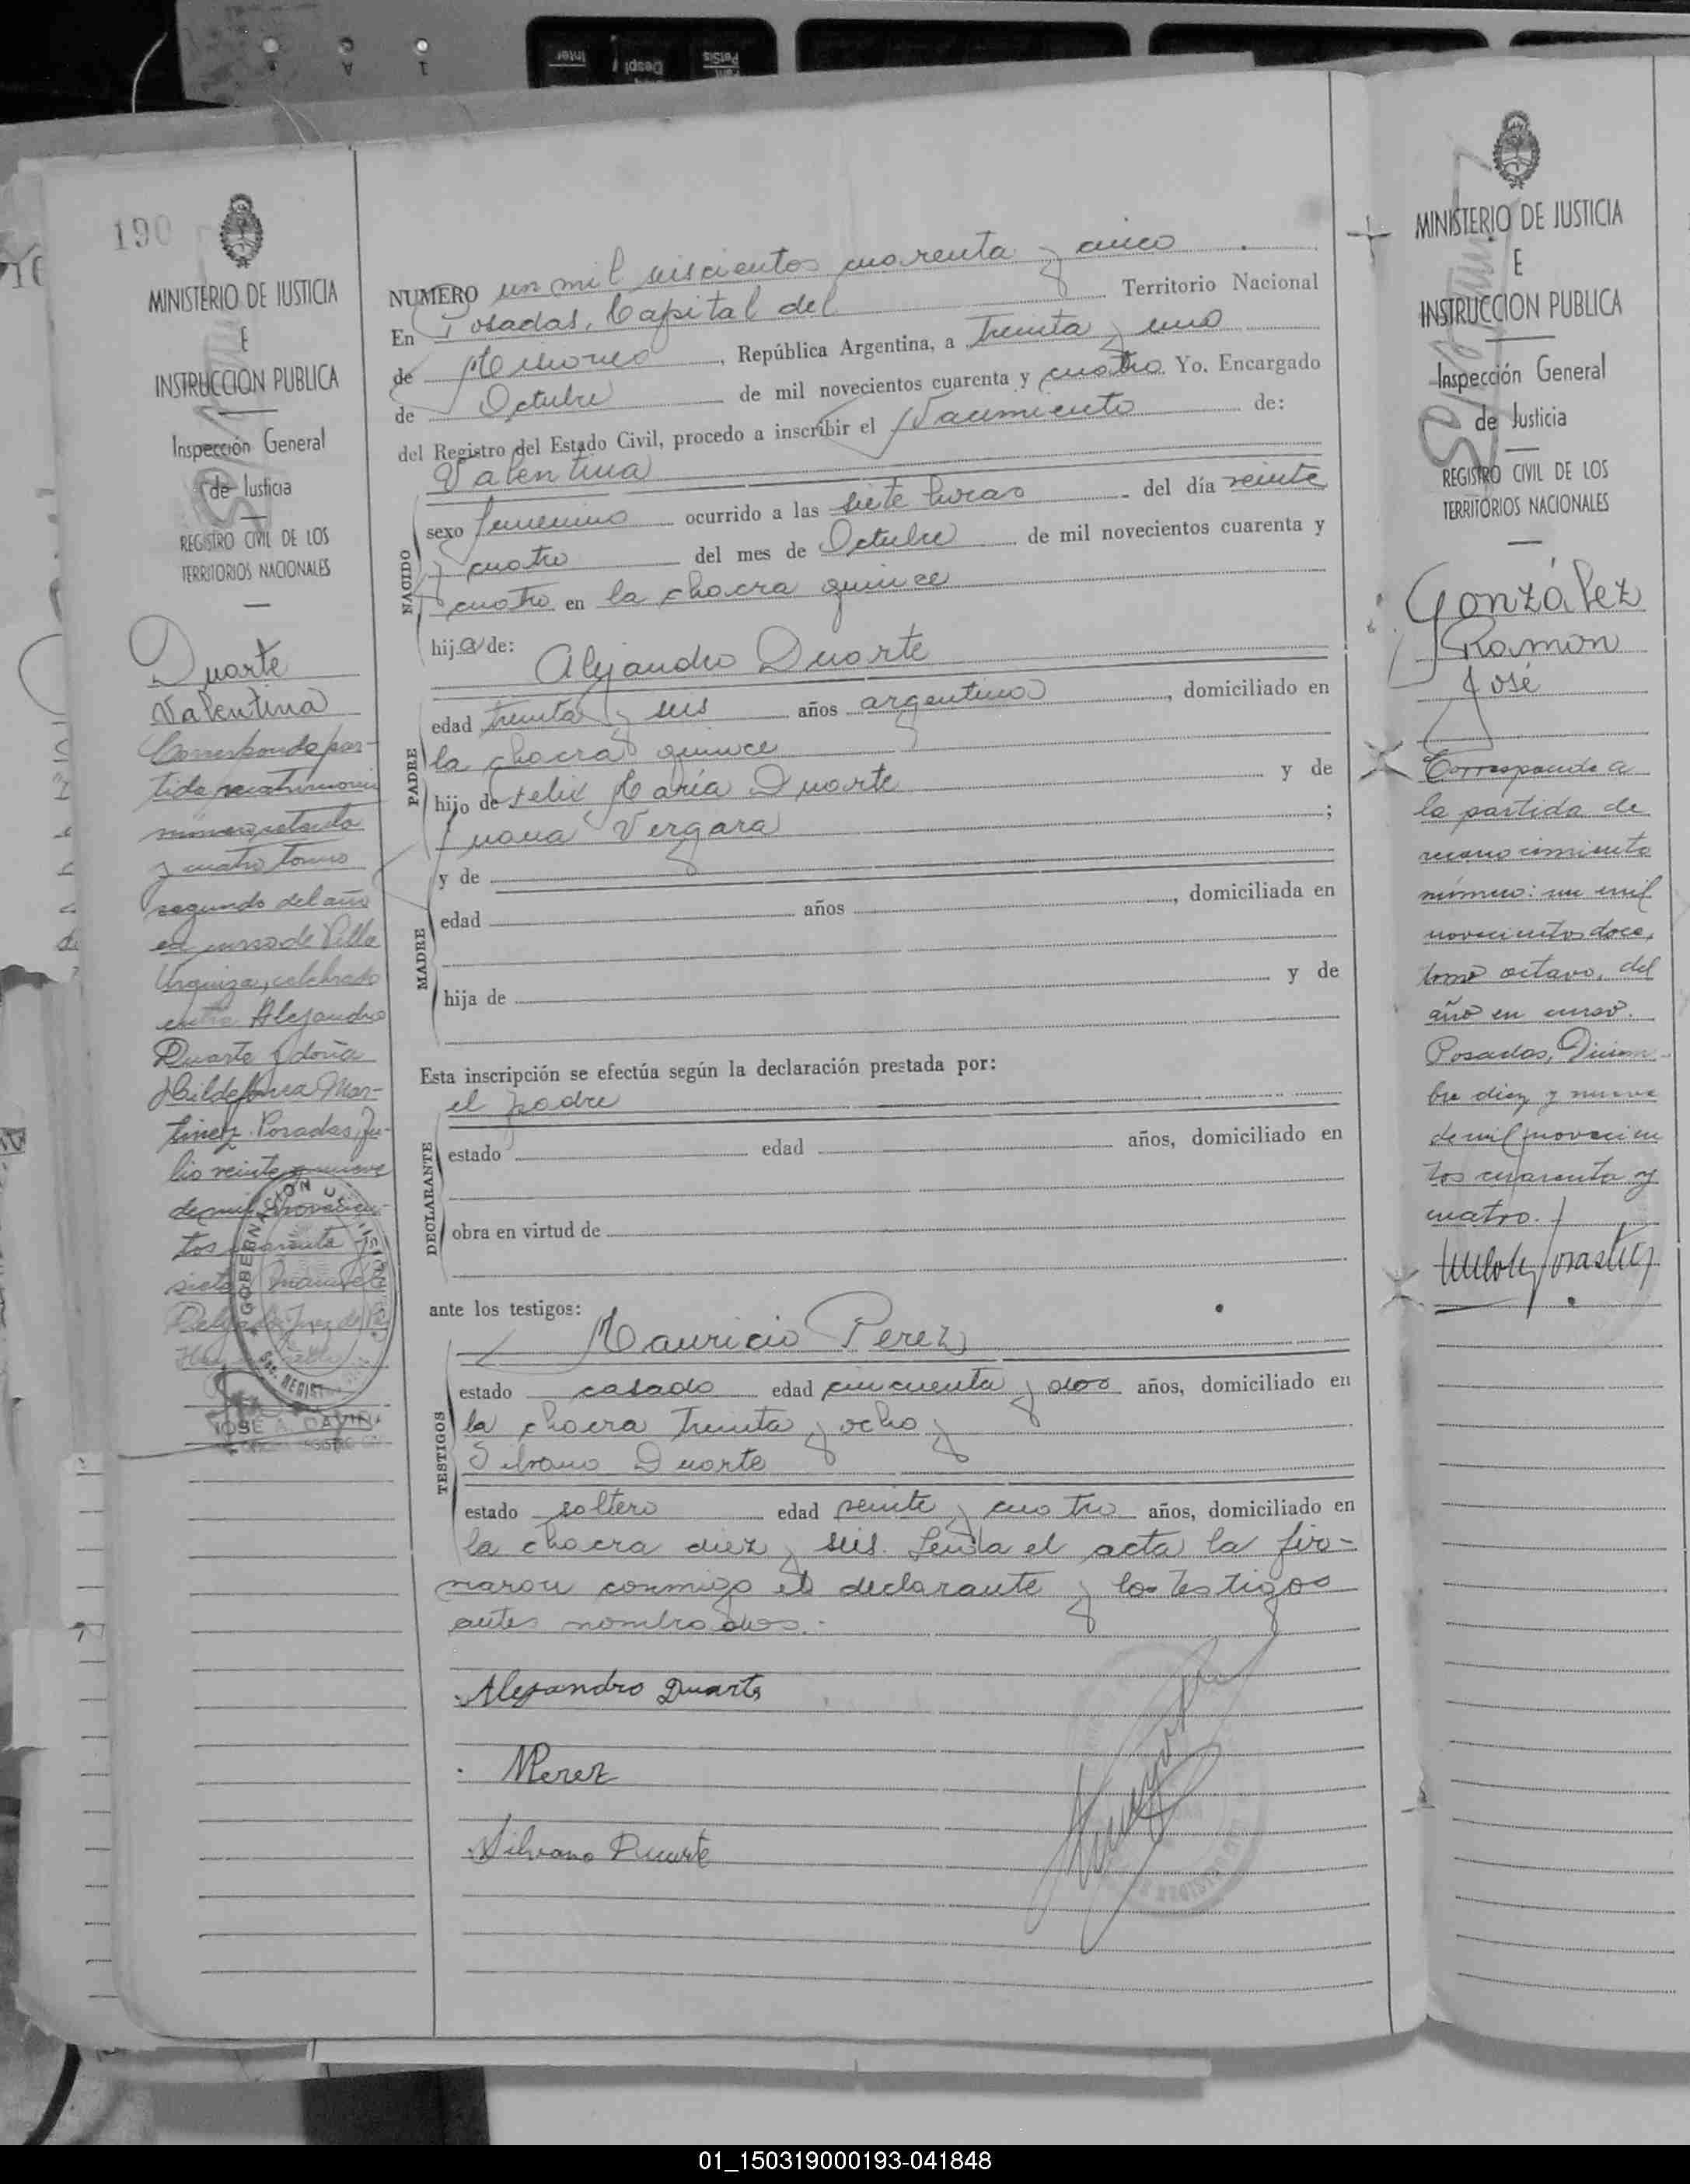 190
MINISTERIO DE JUSTICIA
E
INSTRUCCION PUBLICA
Inspección General
de Justicia
REGISTRO CIVIL DE LOS
TERRITORIOS NACIONALES
Duarte
Valentina
Corresponde par-
tida matrimonio
número
y cuatro tomo
segundo del año
en curso de Villa
Urquiza, celebrado
entre Alejandro
Duarte y doña
Hildefonsa Mar-
tinez. Posadas, Ju-
lio veinte y nueve
de mil novecien-
tos cuarenta y
siete Manuel
Delgado Juez de Paz
GOBERNACION
REGIST
JOSE A.
NUMERO un mil seiscientos cuarenta y cinco
En Posadas, Capital del Territorio Nacional
de Misiones, República Argentina, a Treinta y uno
de Octubre de mil novecientos cuarenta y cuatro. Yo, Encargado
del Registro del Estado Civil, procedo a inscribir el Nacimiento de:
Valentina
NACIDO
sexo femenino ocurrido a las siete horas del día veinte
y cuatro del mes de Octubre de mil novecientos cuarenta y
cuatro en la chacra quince
hija de: Alejandro Duarte
PADRE
edad treinta y seis años argentino, domiciliado en
la chacra quince
hijo de Felix María Duarte y de
Juana Vergara ;
y de
MADRE
edad años , domiciliada en
hija de y de
Esta inscripción se efectúa según la declaración prestada por:
el padre
DECLARANTE
estado edad años, domiciliado en
obra en virtud de
ante los testigos:
Mauricio Perez
TESTIGOS
estado casado edad cincuenta y dos años, domiciliado en
la chacra treinta y ocho y
Silvano Duarte
estado soltero edad veinte y cuatro años, domiciliado en
la chacra diez y seis. Leida el acta la fir-
maron conmigo el declarante y los testigos
antes nombrados.-
Alejandro Duarte
MPerez
Silvano Duarte
MINISTERIO DE JUSTICIA
E
INSTRUCCION PUBLICA
Inspección General
de Justicia
REGISTRO CIVIL DE LOS
TERRITORIOS NACIONALES
González
Ramon
José
Corresponde a
la partida de
reconocimiento
número: un mil
novecientos doce,
tomo octavo, del
año en curso.
Posadas, Diciem-
bre diez y nueve
de mil novecien
tos cuarenta y
cuatro.
01_150319000193-041848